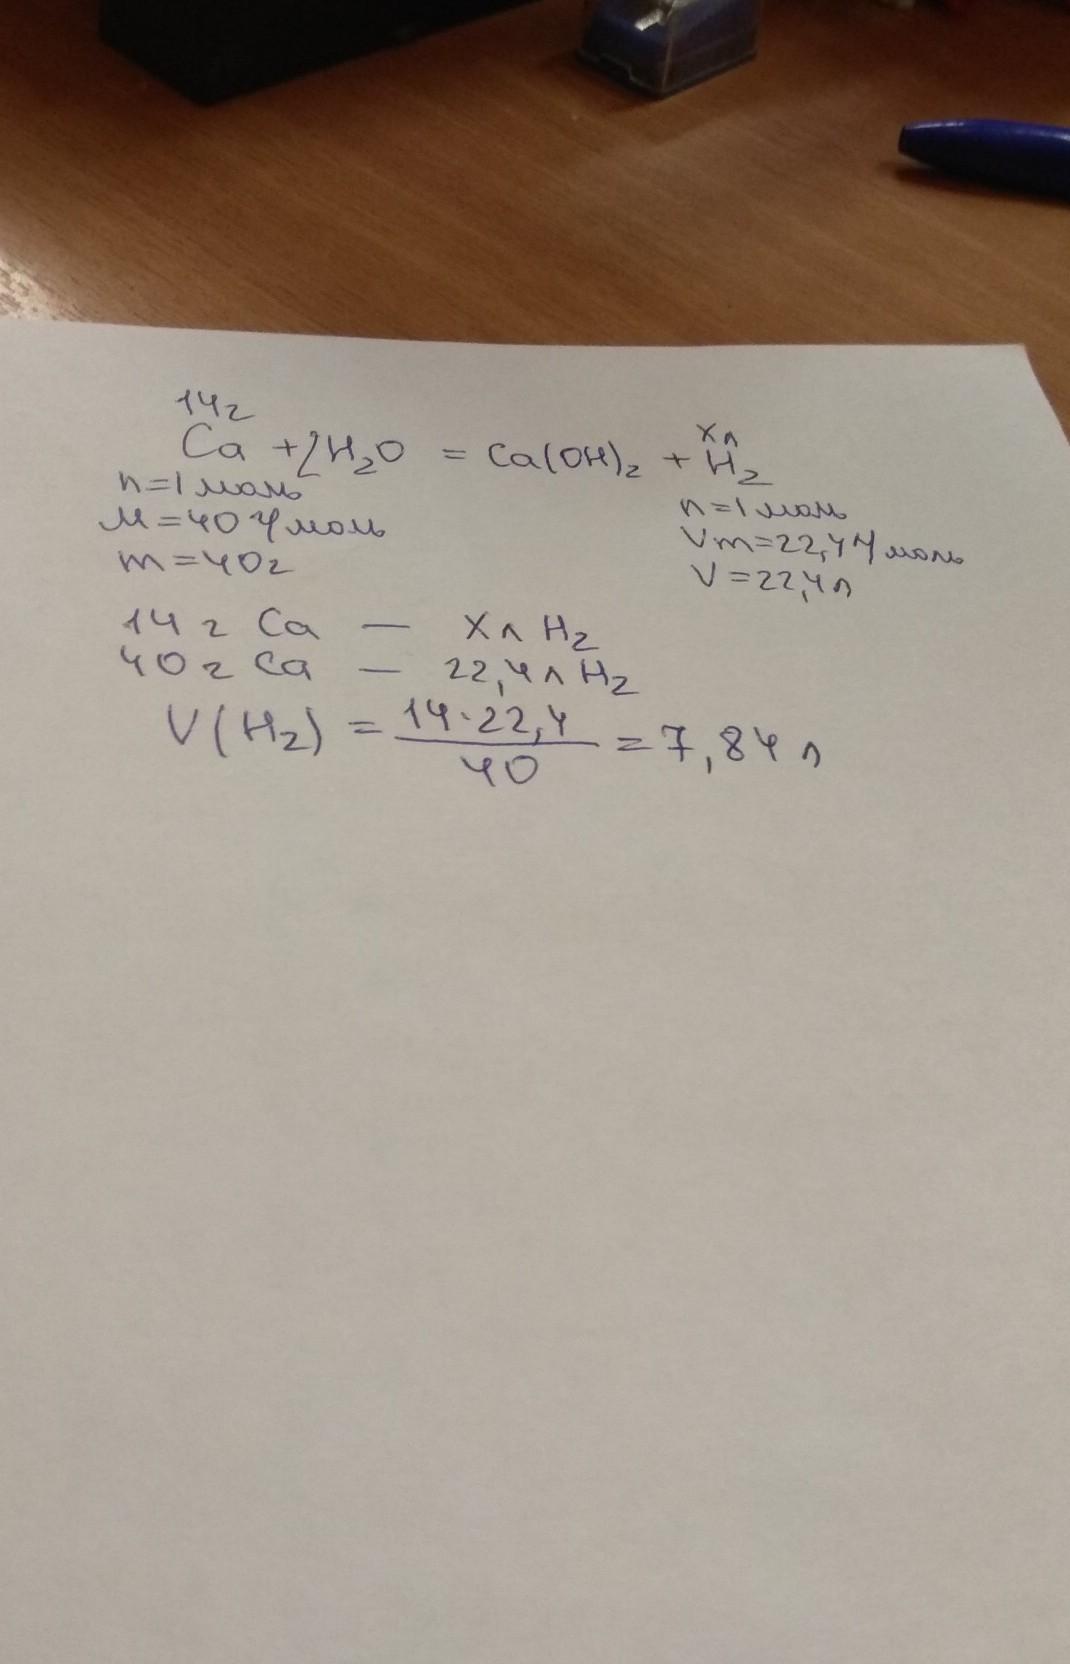 14г xл
Ca + 2H₂O = Ca(OH)₂ + H₂
n=1 моль n=1 моль
M=40 г/моль Vm=22,4 л/моль
m=40г V=22,4л
14 г Ca — xл H₂
40 г Ca — 22,4л H₂
V(H₂) = 14·22,4/40 = 7,84 л